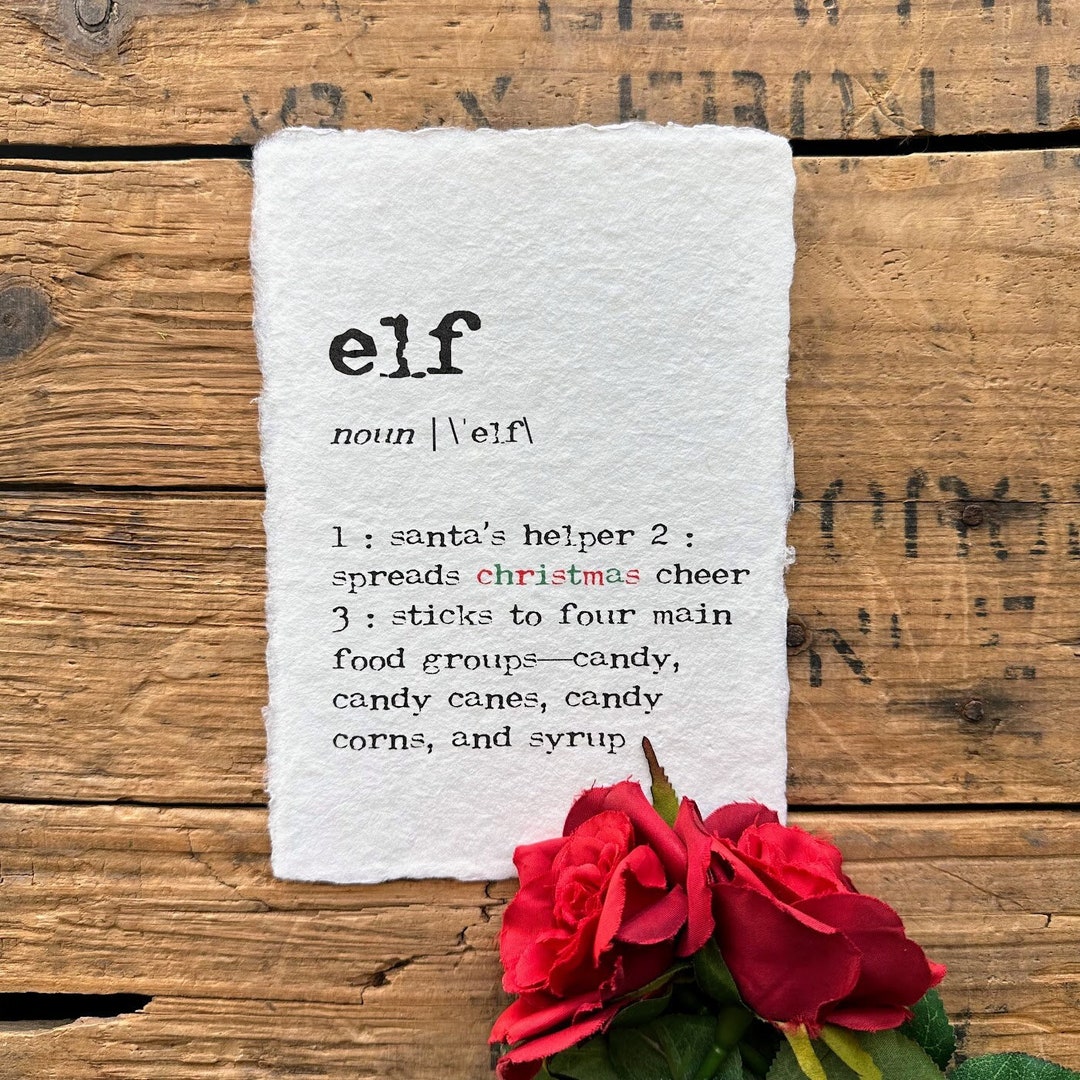 elf
noun | \ˈelf\
1 : santa's helper 2 :
spreads christmas cheer
3 : sticks to four main
food groups—candy,
candy canes, candy
corns, and syrup